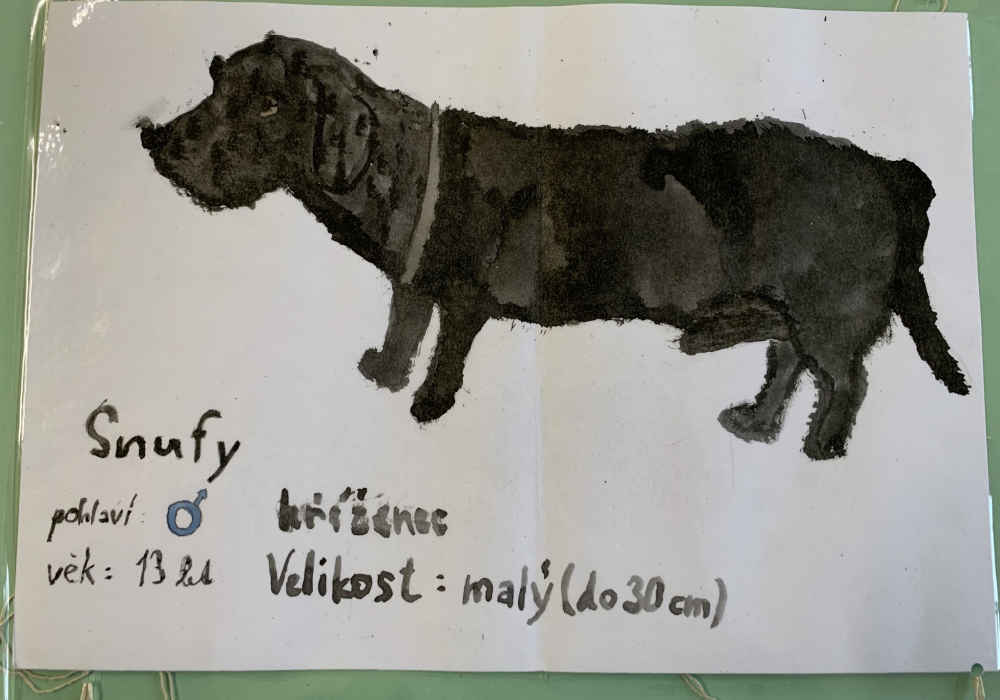 Snufy
pohlaví: ♂
kříženec
věk: 13 let
Velikost: malý (do 30 cm)